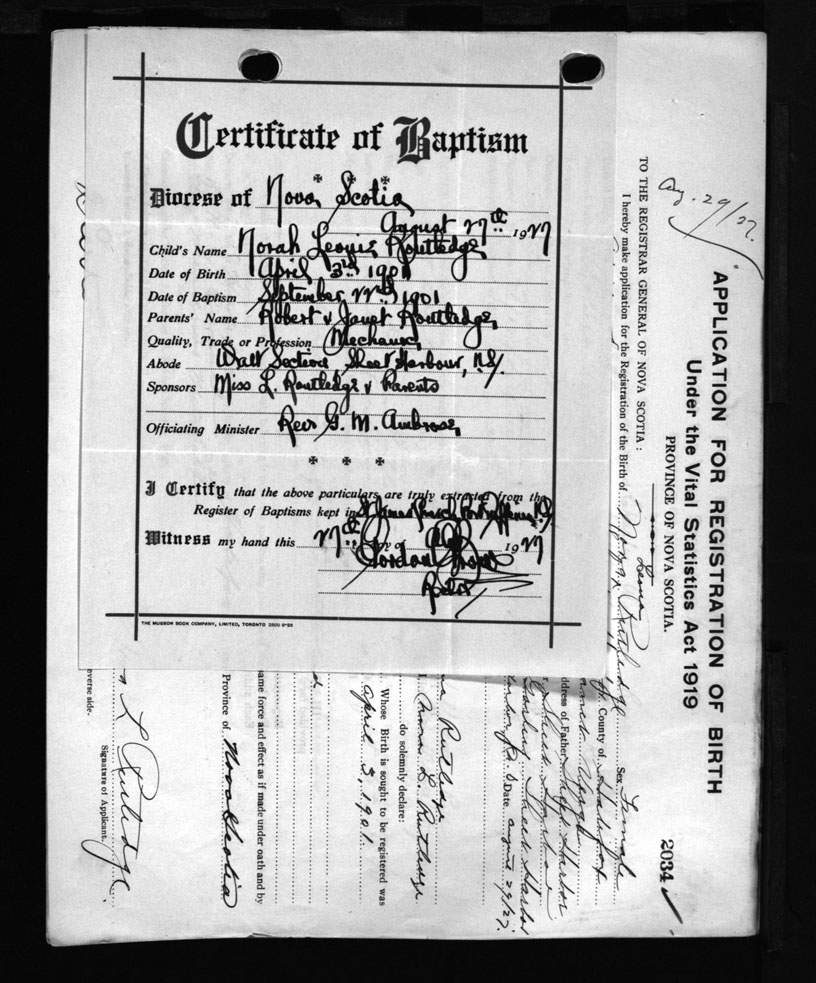 Certificate of Baptism
Diocese of Nova Scotia
August 27th 1927
Child's Name Norah Leonie Routledge
Date of Birth April 3rd 1901
Date of Baptism September 22nd 1901
Parents' Name Robert & Janet Routledge
Quality, Trade or Profession Mechanic
Abode Watt Section Sheet Harbour, N.S.
Sponsors Miss L. Routledge & Parents
Officiating Minister Rev G. M. Ambrose
I Certify that the above particulars are truly extracted from the
Register of Baptisms kept in St James Church Port Dufferin N.S.
Witness my hand this 27th day of 1927
Gordon
Rector
THE MUSSON BOOK COMPANY, LIMITED, TORONTO
Aug. 29/27.
APPLICATION FOR REGISTRATION OF BIRTH
Under the Vital Statistics Act 1919
PROVINCE OF NOVA SCOTIA.
2034
TO THE REGISTRAR GENERAL OF NOVA SCOTIA:
I hereby make application for the Registration of the Birth of
Sex Female
County of Halifax
ddress of Father Sheet Harbor
Sheet Harbor
Date August 27/27.
Rutledge
Nora L. Rutledge
do solemnly declare:
Whose Birth is sought to be registered was
April 3, 1901
same force and effect as if made under oath and by
Province of Nova Scotia
L Rutledge
Signature of Applicant.
everse side.